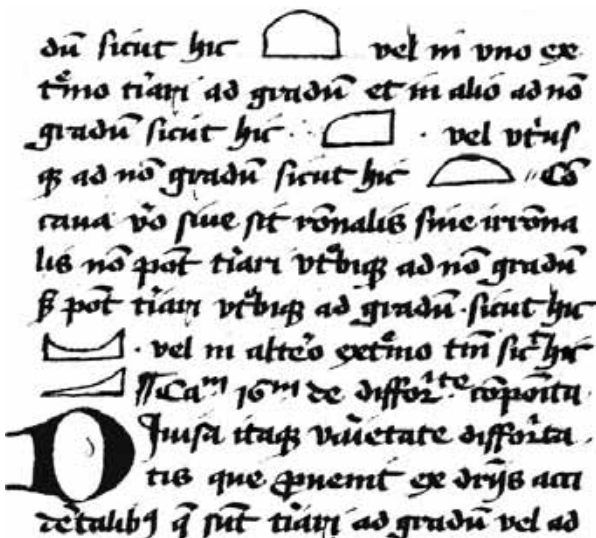 dū sicut hic vel in uno ex
t̄mo t̄iari ad gradū et in alio ad nō
gradū sicut hic · vel ut̄us
q̨ ad nō gradū sicut hic Cō
caua v̄o siue sit rōnalis siue irrōna
lis nō pōt t̄iari ut̄biq̨ ad nō gradū
s̨ pōt t̄iari ut̄biq̨ ad gradū · sicut hic
· vel in alt̄o ext̄mo tm̄ sic̄ hic
¶ Caᵐ 16ᵐ de differ̄ᵗᵉ cōpōita
Diuisa itaq̨ v̄ietate differ̄ita
tis que ꝓuenit ex d̄ijs acci
dētalibꝯ q̄ sūt t̄iari ad gradū vel ad